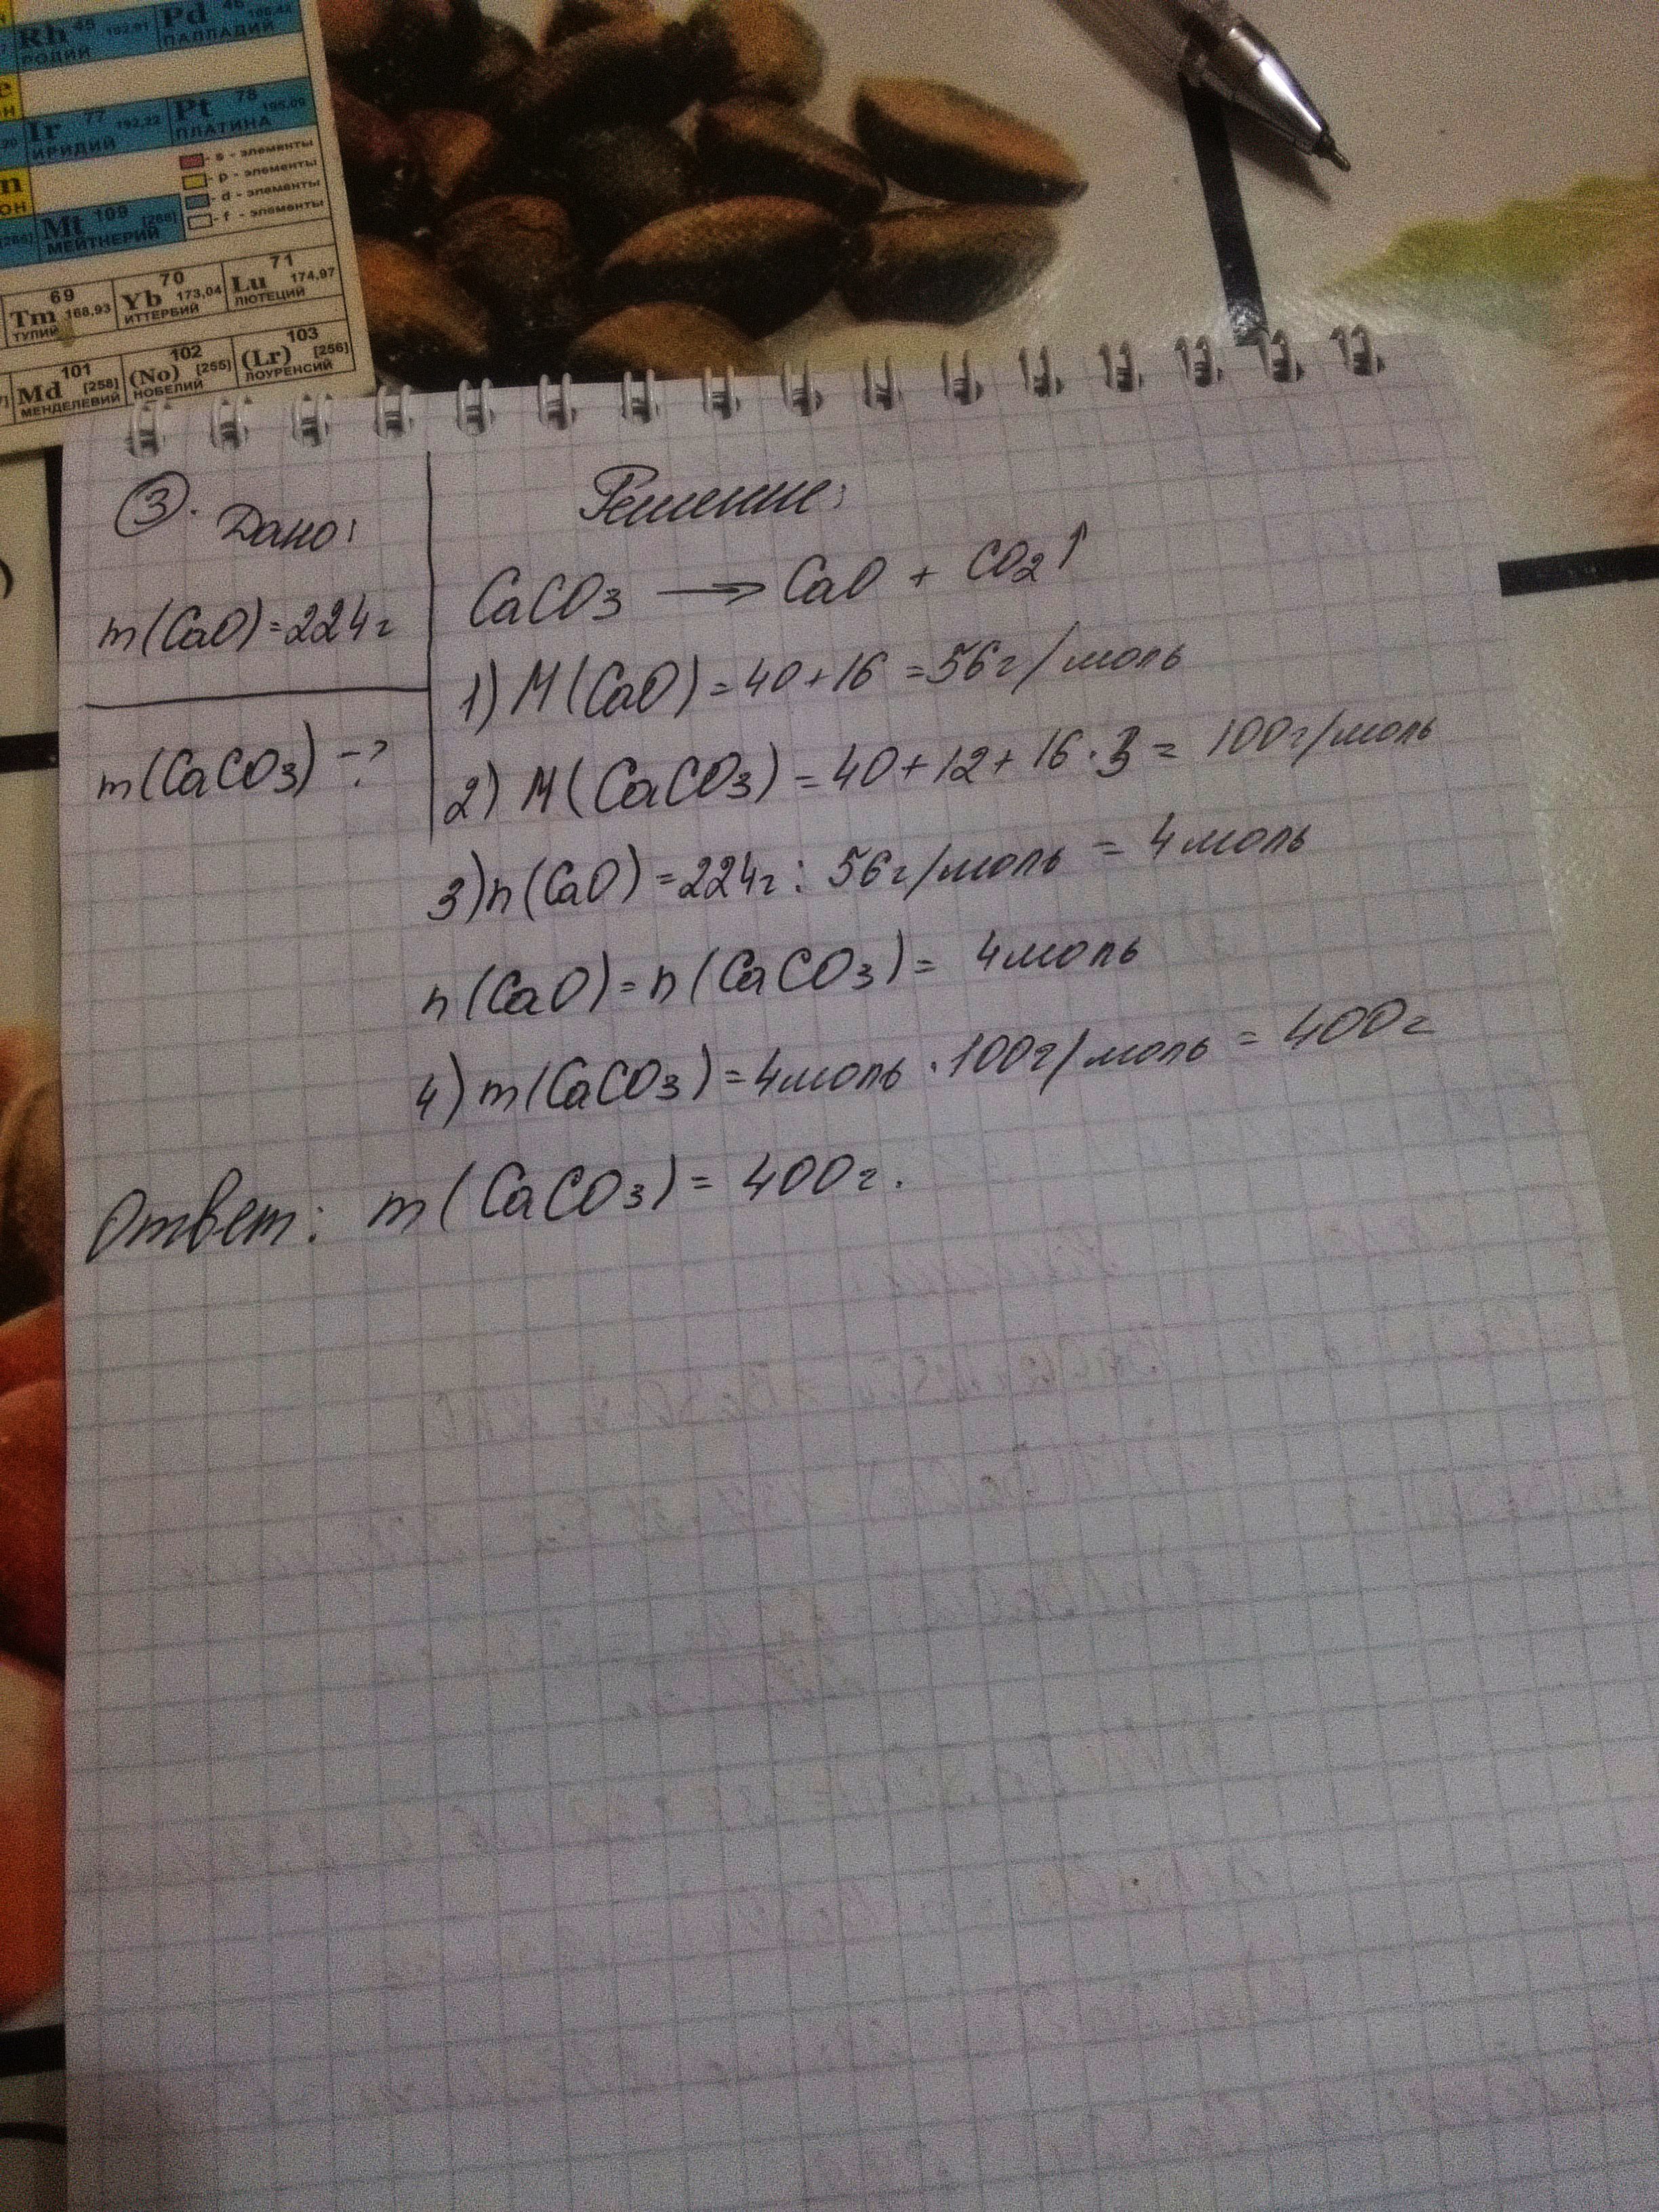 Rh 45 102,91
РОДИЙ
Pd 46
ПАЛЛАДИЙ
Ir 77 192,22
ИРИДИЙ
Pt 78 195,09
ПЛАТИНА
- s - элементы
- p - элементы
- d - элементы
- f - элементы
Mt 109 [266]
МЕЙТНЕРИЙ
69
Tm 168,93
ТУЛИЙ
70
Yb 173,04
ИТТЕРБИЙ
71
Lu 174,97
ЛЮТЕЦИЙ
101
Md [258]
МЕНДЕЛЕВИЙ
102
(No) [255]
НОБЕЛИЙ
103
(Lr) [256]
ЛОУРЕНСИЙ
3. Дано:
m(CaO)=224г
m(CaCO3) -?
Решение:
CaCO3 → CaO + CO2↑
1) M(CaO) = 40+16 = 56г/моль
2) M(CaCO3) = 40+12+16·3 = 100г/моль
3) n(CaO) = 224г : 56г/моль = 4моль
n(CaO) = n(CaCO3) = 4моль
4) m(CaCO3) = 4моль · 100г/моль = 400г
Ответ: m(CaCO3) = 400г.